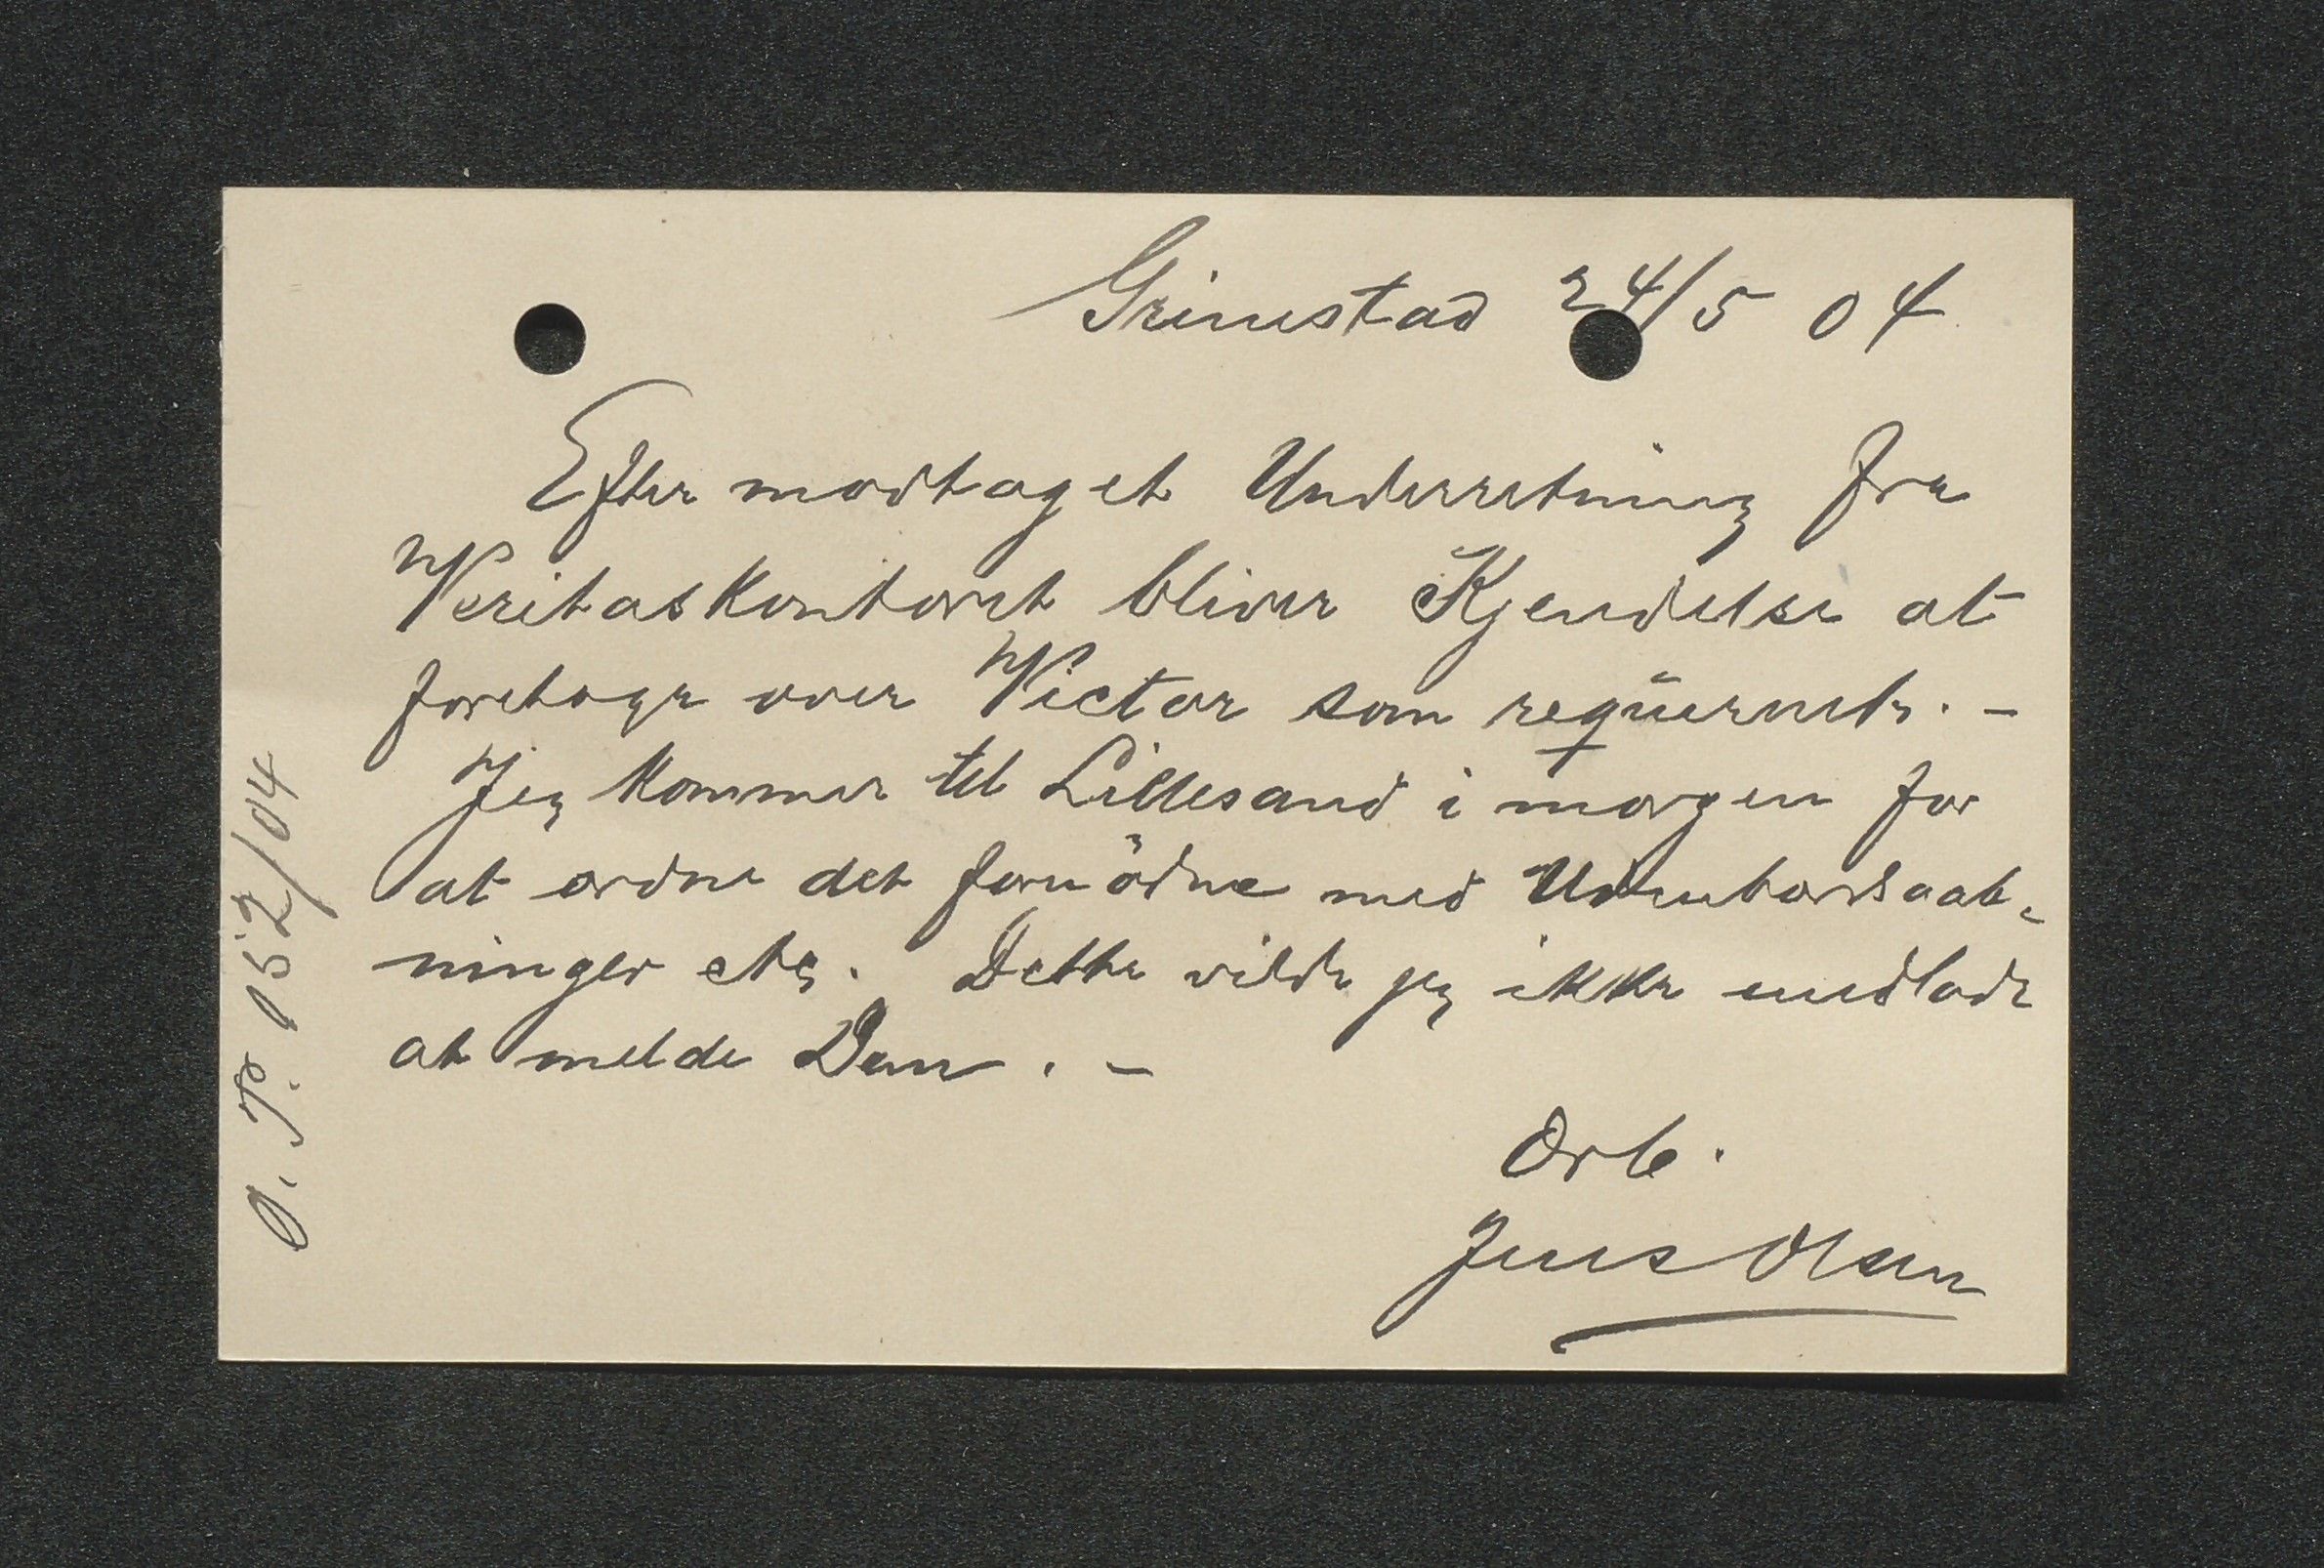 Grimstad 24/5 04
Efter modtaget Underretning fra
Veritaskontoret bliver Kjendelse at
foretage over Victor som
Jeg kommer til Lillesand i morgen for
at ordne det fornödne med
ninger etc. Dette vilde jeg ikke undlade
at melde Dem. -
Ærb.
Jens Olsen
O. P. 152/04